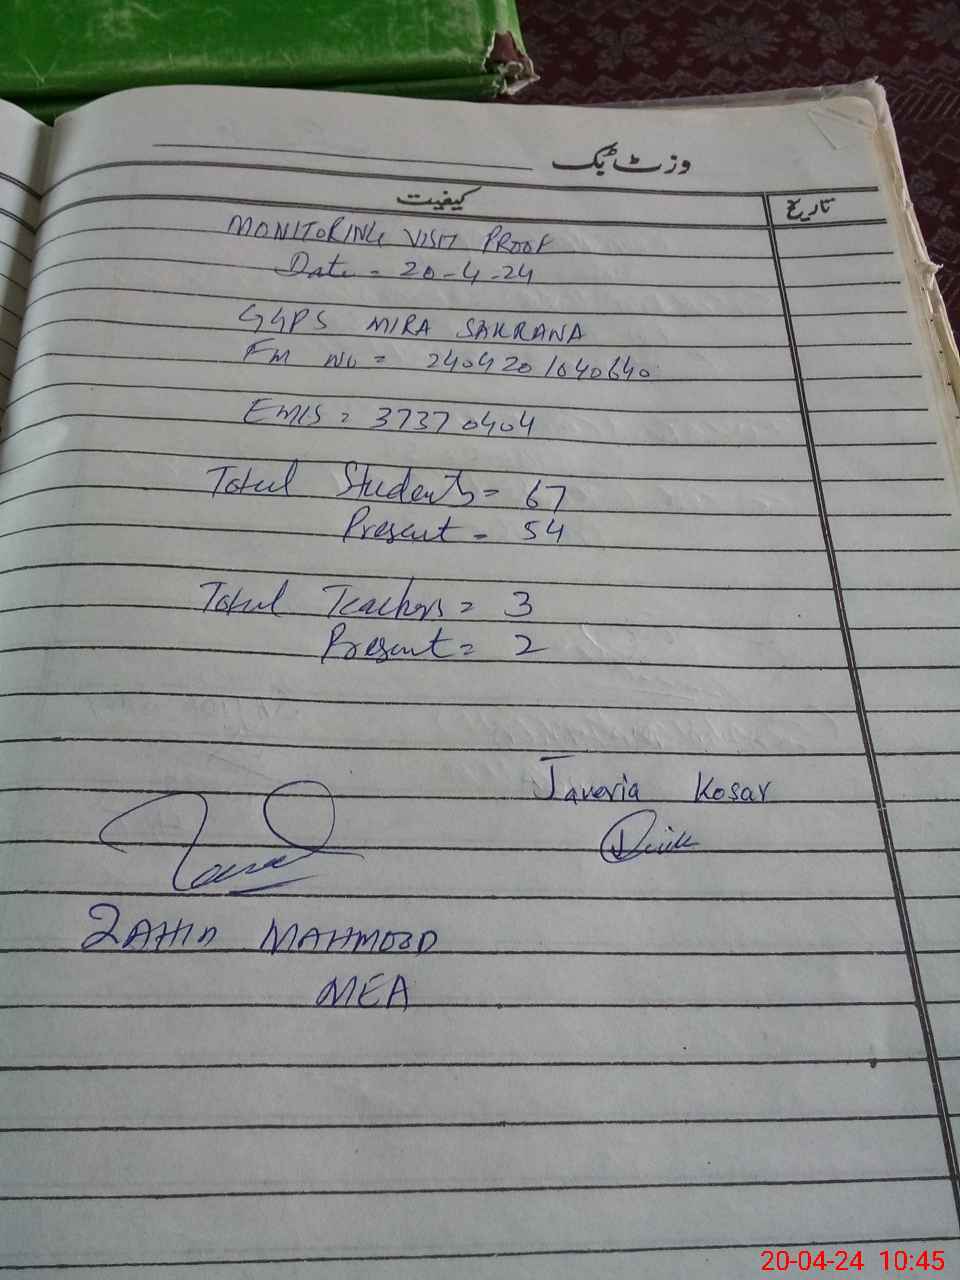 وزٹ بک
کیفیت
تاریخ
MONITORING VISIT PROOF
Date = 20-4-24
GGPS MIRA SAKRANA
FM No = 2404201040640
EMIS = 37370404
Total Students = 67
Present = 54
Total Teachers = 3
Present = 2
Javeria Kosar
ZAHID MAHMOOD
MEA
20-04-24 10:45